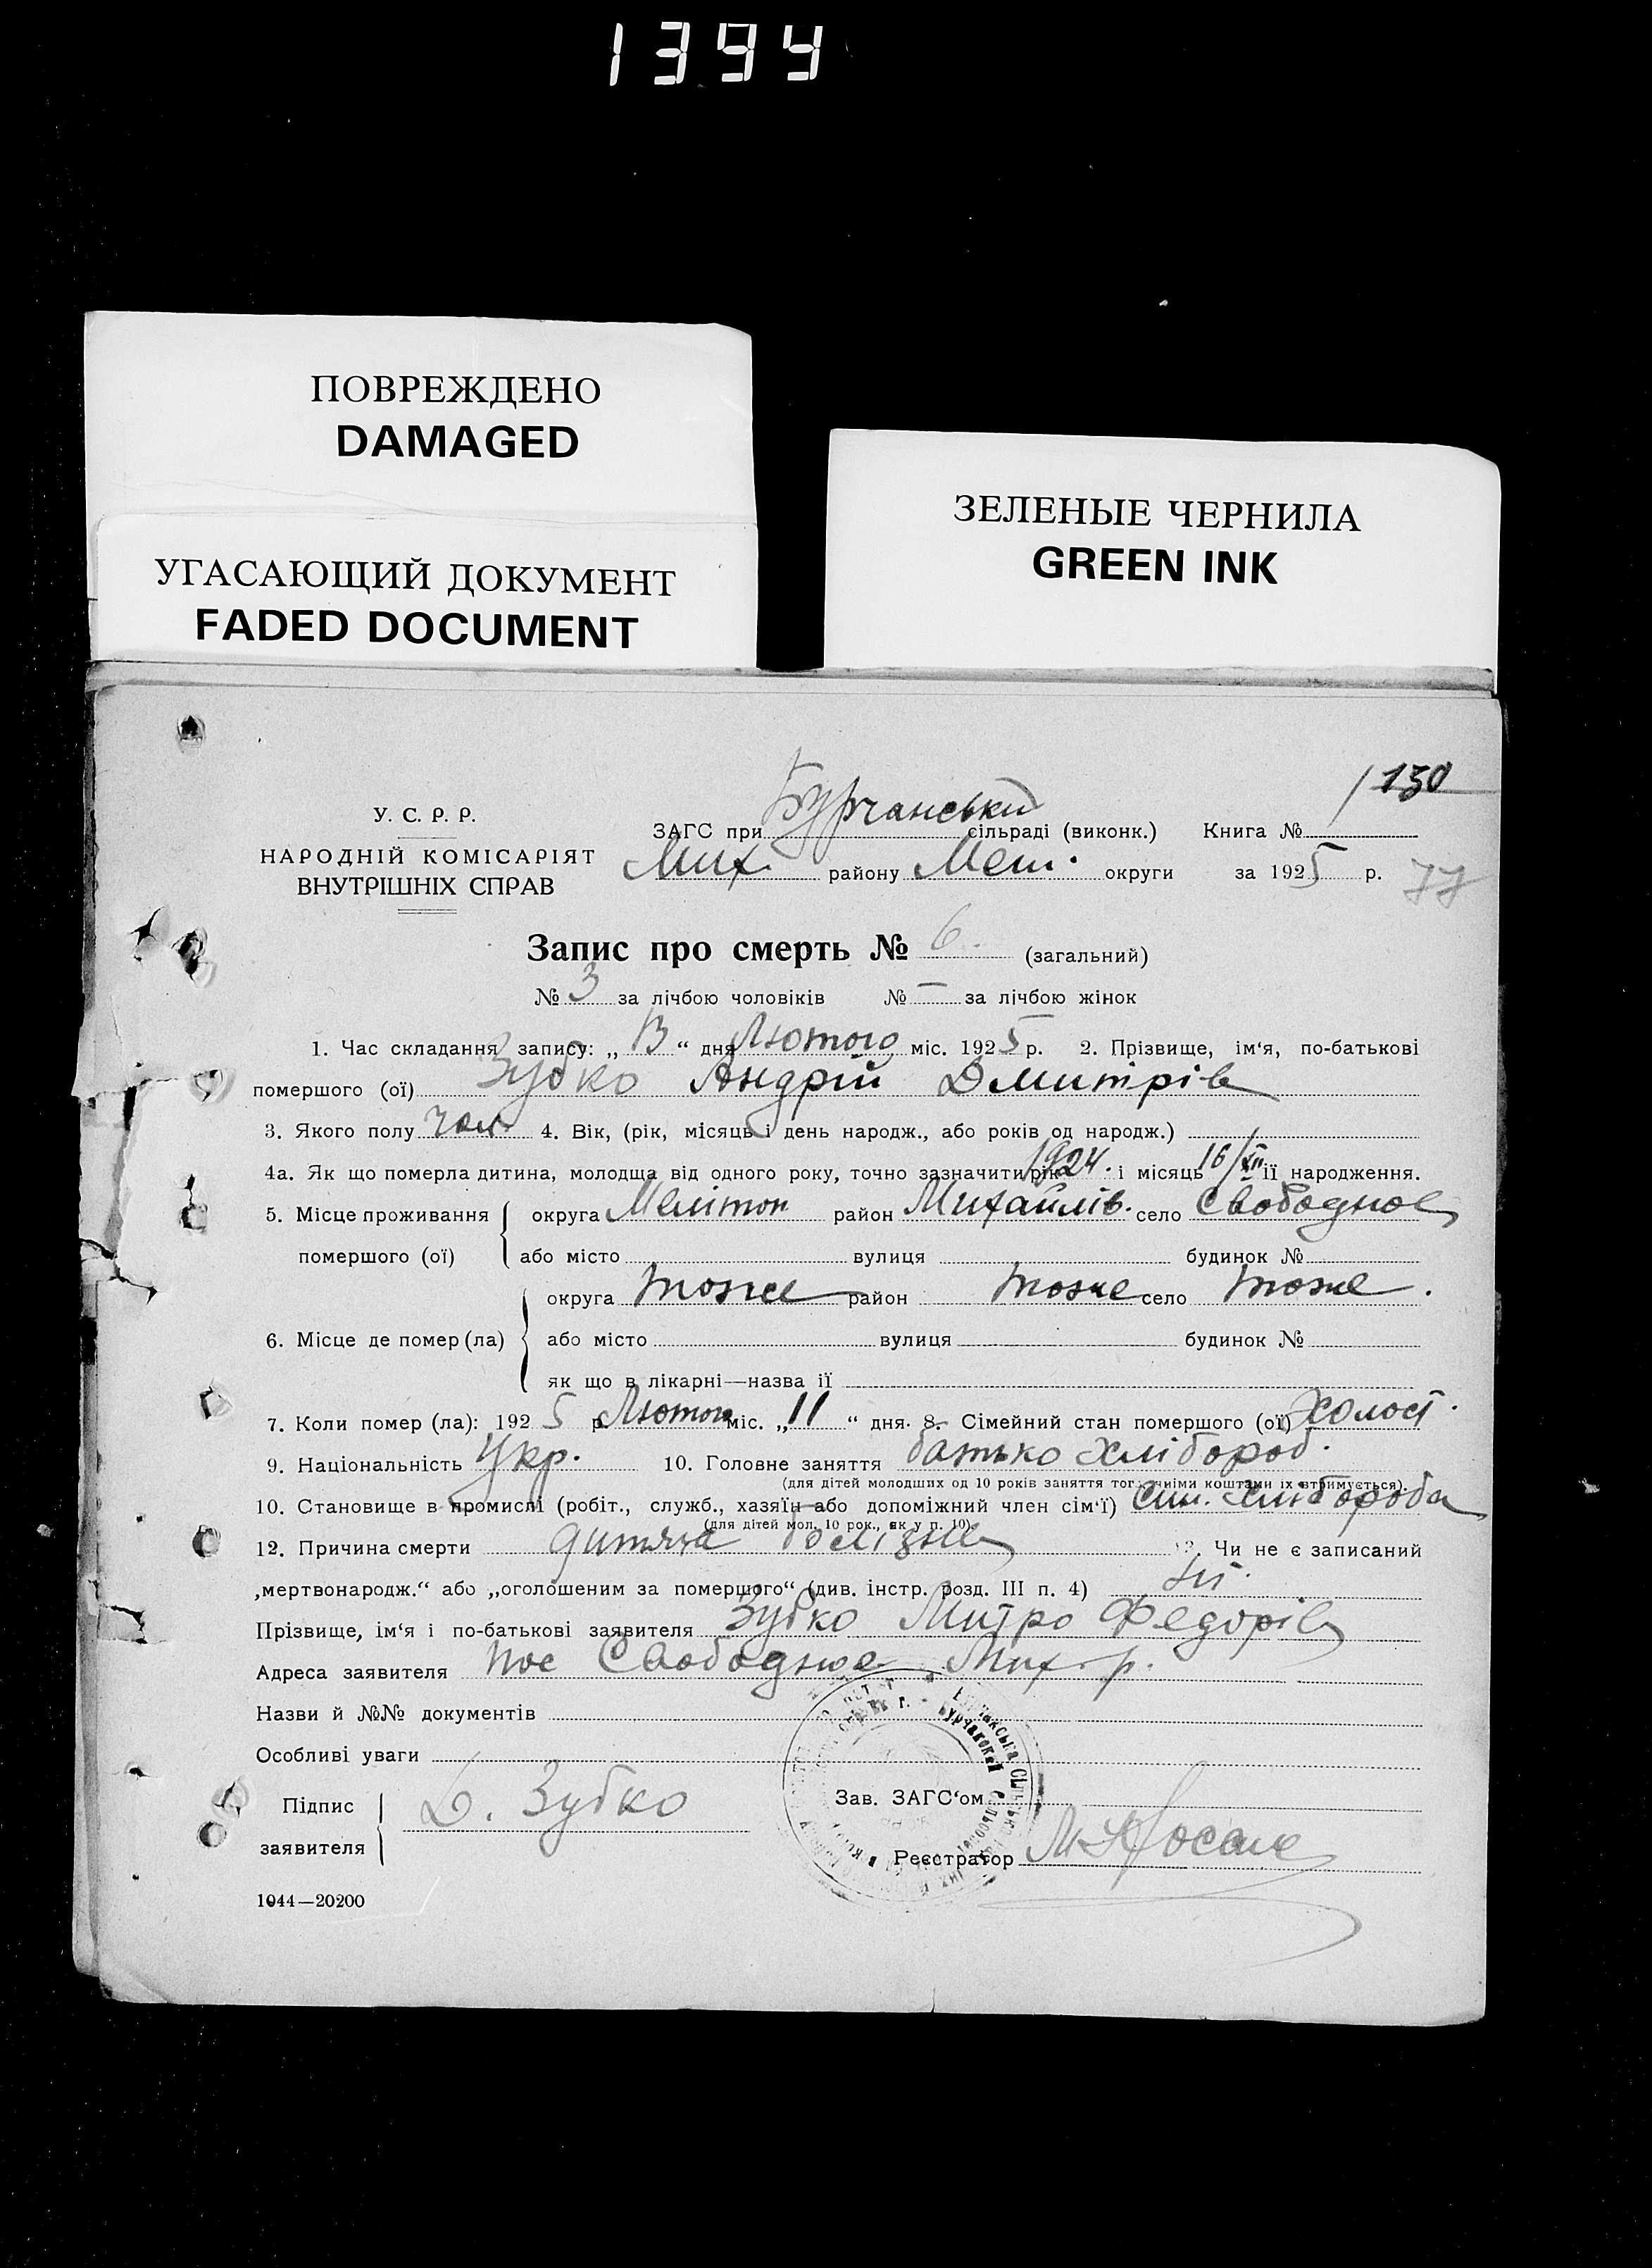 1394
ПОВРЕЖДЕНО
DAMAGED
УГАСАЮЩИЙ ДОКУМЕНТ
FADED DOCUMENT
ЗЕЛЕНЫЕ ЧЕРНИЛА
GREEN INK
130
У. С. Р. Р.
НАРОДНІЙ КОМІСАРІЯТ
ВНУТРІШНІХ СПРАВ
ЗАГС при Бурчанськи сільраді (виконк.) Книга №
Мих. району Мел. округи за 1925 р. 77
Запис про смерть № 6. (загальний)
№ 3 за лічбою чоловіків № — за лічбою жінок
1. Час складання запису: „ 13 “ дня Лютого міс. 1925 р. 2. Прізвище, ім'я, по-батькові
помершого (ої) Зубко Андрій Дмитрів
3. Якого полу чол. 4. Вік, (рік, місяць і день народж., або років од народж.)
4а. Як що померла дитина, молодща від одного року, точно зазначити рік 1924. і місяць 16/XII її народження.
5. Місце проживання помершого (ої) округа Мелітоп район Михайлів. село Свободное
або місто вулиця будинок №
6. Місце де помер (ла) округа тоже район тоже село тоже.
або місто вулиця будинок №
як що в лікарні—назва її
7. Коли помер (ла): 1925 р. Лютого міс. „ 11 “ дня. 8. Сімейний стан помершого (ої) Холост.
9. Національність Укр. 10. Головне заняття батько хлібороб.
(для дітей молодших од 10 років заняття того чиїми коштами їх втримується).
10. Становище в промислі (робіт., служб., хазяїн або допоміжний член сім'ї) син. хлибороба
(для дітей мол. 10 рок., як у п. 10).
12. Причина смерти дитяча болізне 13. Чи не є записаний
„мертвонародж.“ або „оголошеним за помершого“ (див. інстр. розд. III п. 4) Ні.
Прізвище, ім'я і по-батькові заявителя Зубко Митро Федорів
Адреса заявителя пос Свободное Мих. р.
Назви й №№ документів
Особливі уваги
Підпис заявителя Д. Зубко
Зав. ЗАГС'ом
Реєстратор
1044—20200